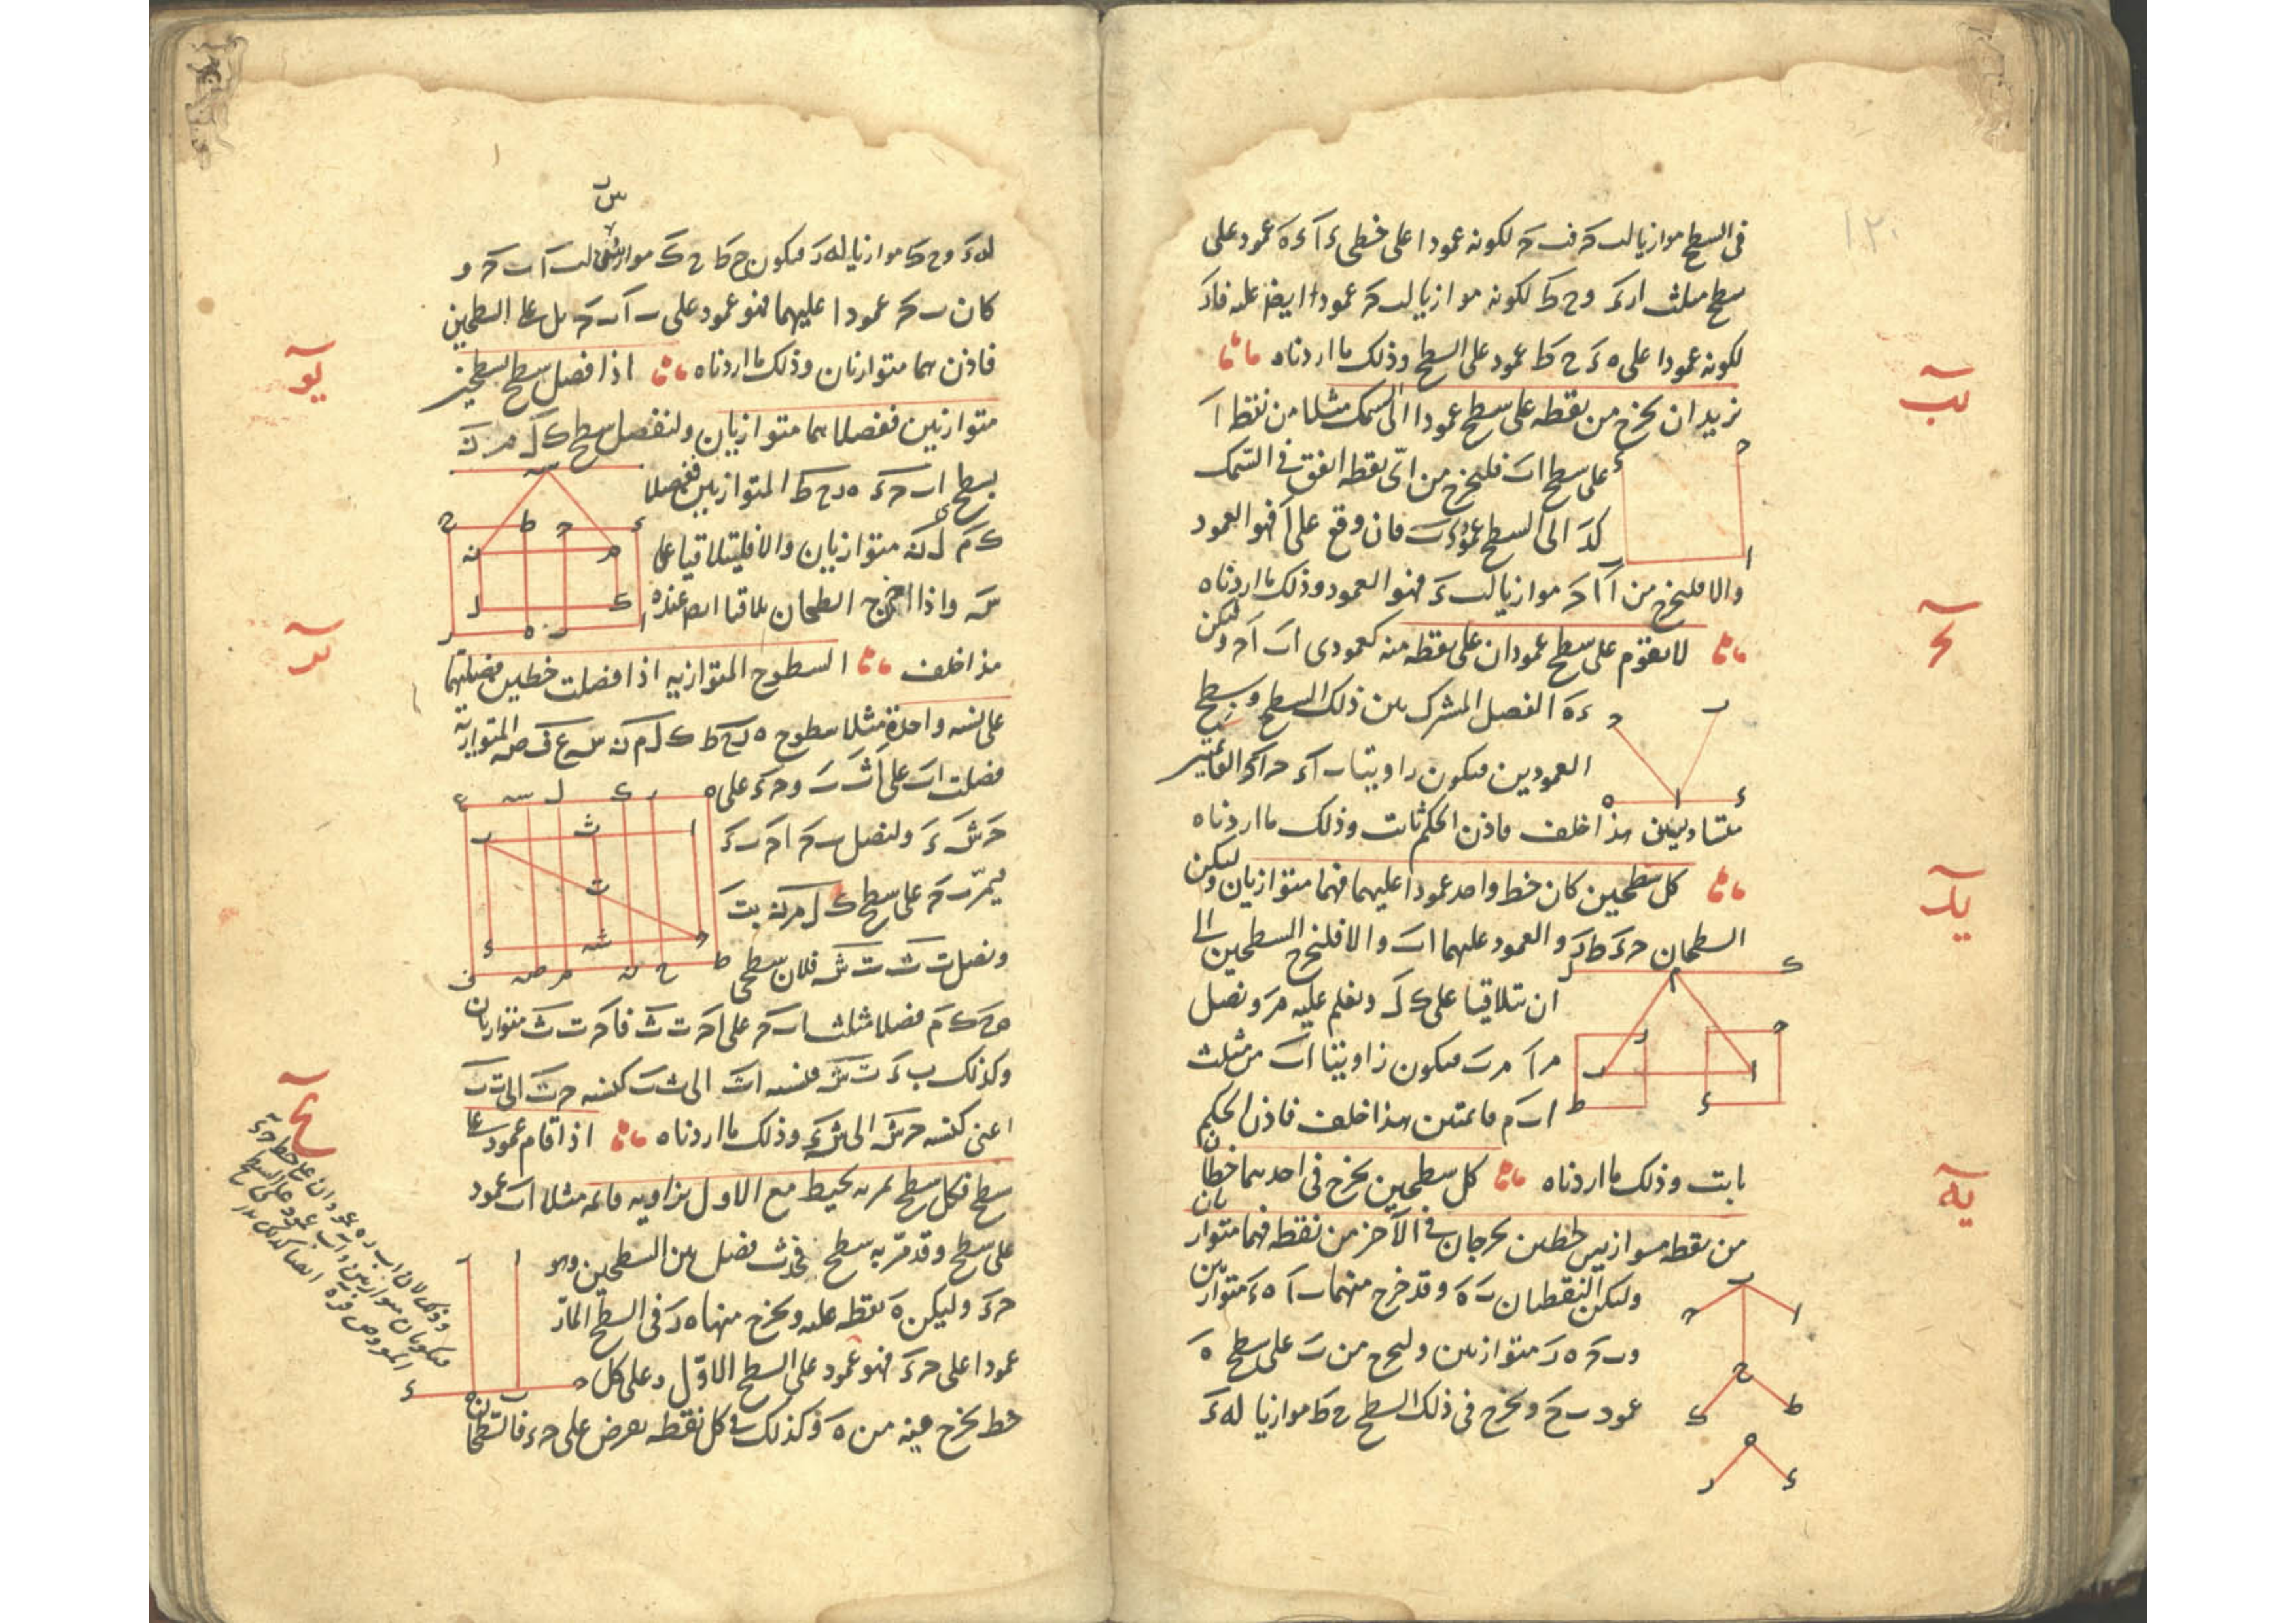 فى السطح موازيا لب حَ فب حَ لكونه عمودا على خطى ءَ اَ ءَ هَ عمود على
سطح مثلث ا د ءَ و ح طَ لكونه موازيا لب حَ عمودا ايضا عليه فاذَ
لكونه عمودا على ه ءَ ح طَ عمود على السطح وذلك ما اردناه
يب
نريد ان نخرج من نقطه على سطح عمودا الى السمك مثلا من نقطة اَ
على سطح ا بَ فلنخرج من اىّ نقطه اتفق فى السمك
كدَ الى السطح عمود ء بَ فان وقع على اَ فهو العمود
والا فلنخرج من اَ ا حَ موازيا لب ءَ فهو العمود وذلك ما اردناه
يح
لا يقوم على سطح عمودان على نقطه منه كعمودى ا بَ ا حَ وليكن
ء هَ الفصل المشترك بين ذلك السطح وسطح
العمودين فيكون زاويتا ب ا ءَ ح ا ءَ القائمتين
متساويتين هذا خلف فاذن الحكم ثابت وذلك ما اردناه
يد
كل سطحين كان خط واحد عمودا عليهما فهما متوازيان وليكن
السطحان ح ءَ ط دَ والعمود عليهما ا بَ والا فلنخرج السطحين الى
ان يتلاقيا على ك لَ ونعلم عليه مَ ونصل
م اَ م بَ فيكون زاويتا ا بَ من مثلث
ا ب م قائمتين هذا خلف فاذن الحكم
ثابت وذلك ما اردناه كل سطحين يخرج فى احدهما خطان
يه
من نقطه موازيين لخطين يخرجان فى الآخر من نقطه فهما متوازيان
وليكن النقطتان بَ هَ وقد خرج منهما ب اَ ه ءَ متوازيين
و ب حَ ه دَ متوازيين وليخرج من بَ على سطح هَ
عمود ب حَ ونخرج فى ذلك السطح ح طَ موازيا له ءَ
له ءَ و ح كَ موازيا له دَ فيكون ح طَ ح كَ موازيين لب اَ ب حَ و
كان ب حَ عمودا عليهما فهو عمود على ب اَ ب حَ بل على السطحين
فاذن هما متوازيان وذلك ما اردناه اذا فصل سطح سطحين
يو
متوازيين ففصلاهما متوازيان ولنفصل سطح ك ل م نَ
سطحى ا ب ح ءَ ه د ح طَ المتوازيين ففصلا
ك مَ ل نَ متوازيان والا فليتلاقيا على
سَ واذا اخرج السطحان تلاقيا ايضا عنده
هذا خلف السطوح المتوازيه اذا فصلت خطين فصلتهما
يز
على نسبه واحدة مثلا سطوح ه د ح طَ ك ل م نَ س ع ف صَ المتوازية
فصلت ا بَ على اَ ثَ بَ و ح ءَ على
حَ شَ ءَ ولنصل ب حَ ا حَ ب ءَ
ليمرّ ب حَ على سطح ك ل م نَ بتَ
ونصل ت ثَ ت شَ فلان سطحى
ه ح ك مَ فصلا مثلث ا ب حَ على ا حَ ت ثَ فا حَ ت ثَ متوازيان
وكذلك ب ءَ ت شَ فنسبه ا ثَ الى ث بَ كنسبه ح تَ الى ت بَ
اعنى كنسبه ح شَ الى ش ءَ وذلك ما اردناه اذا قام عمود على
يح
سطح فكل سطح يمر به يحيط مع الاول بزاويه قائمه مثلا ا بَ عمود
على سطح وقد مرّ به سطح فحدث فصل بين السطحين وهو
ح ءَ وليكن هَ نقطه عليه ونخرج منها ه دَ فى السطح المارّ
عمودا على ح ءَ فهو عمود على السطح الاوّل وعلى كل
خط يخرج فيه من هَ وكذلك فى كل نقطه يعرض على ح ء فالسطحان
وذلك لان ا ب د ه عمودان على خط ح ءَ
فيكونان متوازيين و ا بَ عمود على السطح
المفروض فد ه ايضا كذلك